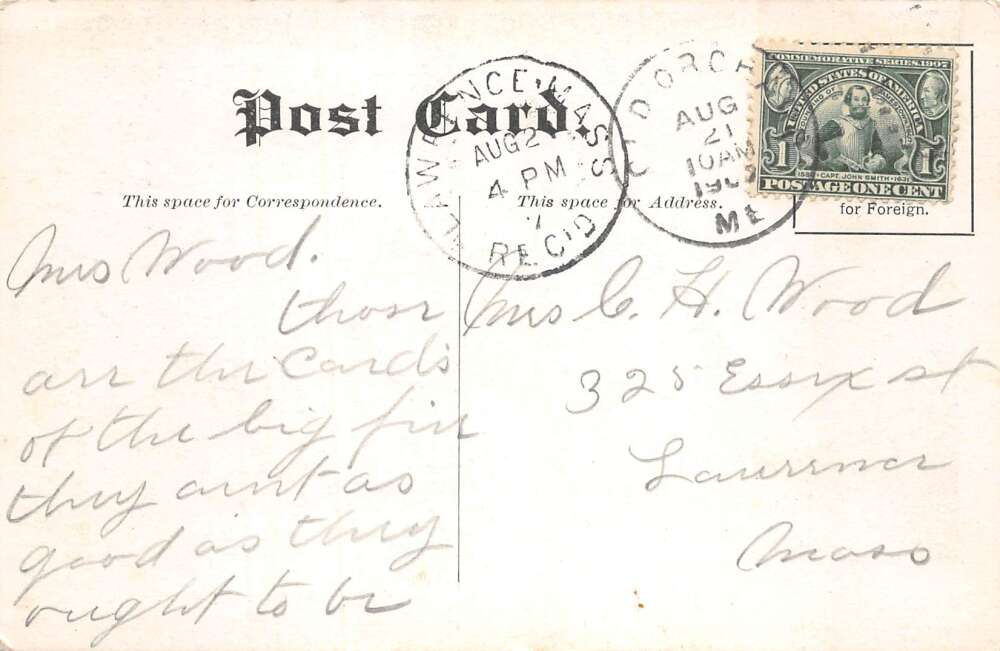 Post Card.
This space for Correspondence.
This space for Address.
for Foreign.
LAWRENCE, MASS
AUG 2
4 PM
REC'D
D ORCH
AUG
21
10AM
1907
ME
COMMEMORATIVE SERIES 1907
UNITED STATES OF AMERICA
FOUNDING OF JAMESTOWN
1 1
1580 · CAPT. JOHN SMITH · 1631
POSTAGE ONE CENT
Mrs Wood.
those
are the Cards
of the big fire
they aint as
good as they
ought to be
Mrs C. H. Wood
325 Essex st
Lawrence
Mass